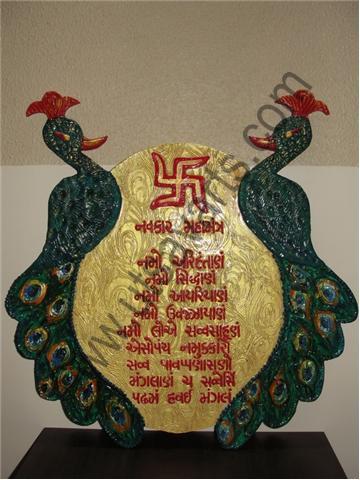 નવકાર મહામંત્ર
નમો અરિહંતાણં
નમો સિદ્ધાણં
નમો આયરિયાણં
નમો ઉવજ્ઝાયાણં
નમો લોએ સવ્વસાહૂણં
એસોપંચ નમુક્કારો
સવ્વ પાવપ્પણાસણો
મંગલાણં ચ સવ્વેસિં
પઢમં હવઈ મંગલં